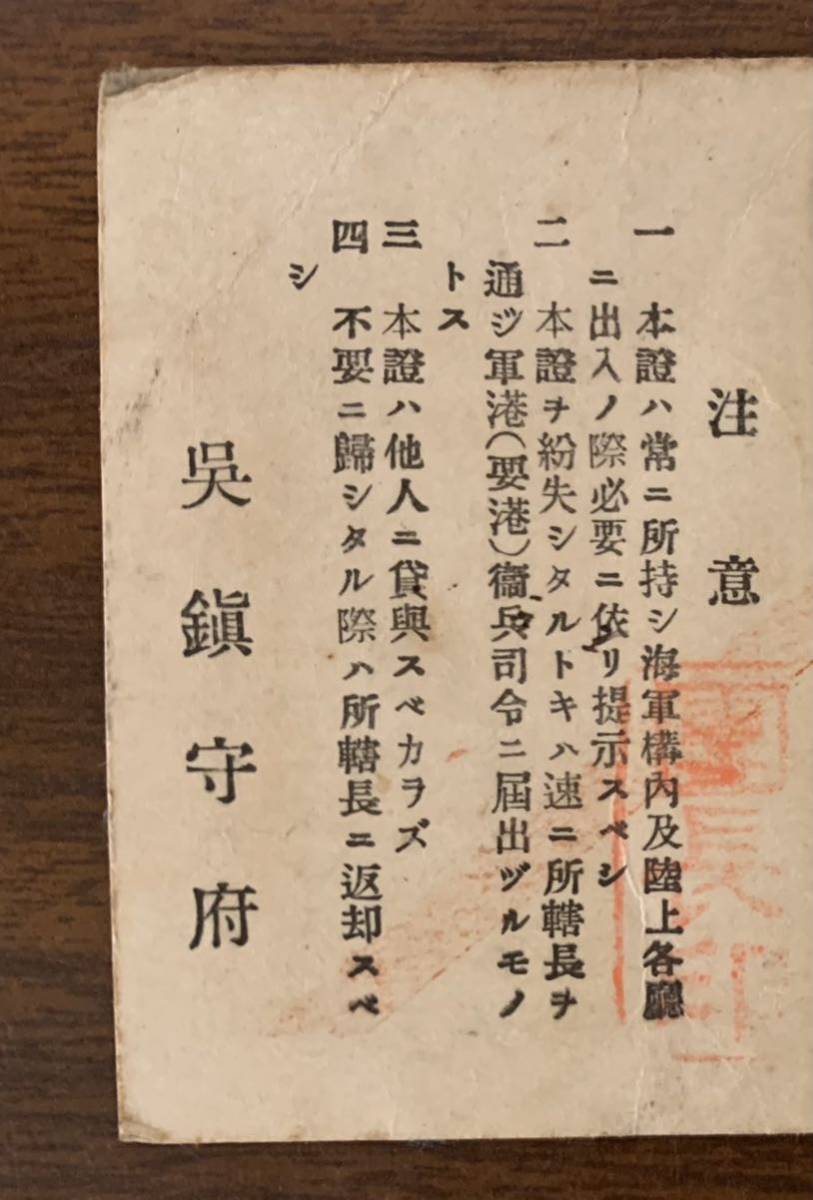 注意
一　本證ハ常ニ所持シ海軍構內及陸上各廳
ニ出入ノ際必要ニ依リ提示スベシ
二　本證ヲ紛失シタルトキハ速ニ所轄長ヲ
通ジ軍港（要港）衞兵司令ニ屆出ヅルモノ
トス
三　本證ハ他人ニ貸與スベカラズ
四　不要ニ歸シタル際ハ所轄長ニ返却スベ
シ
吳鎭守府